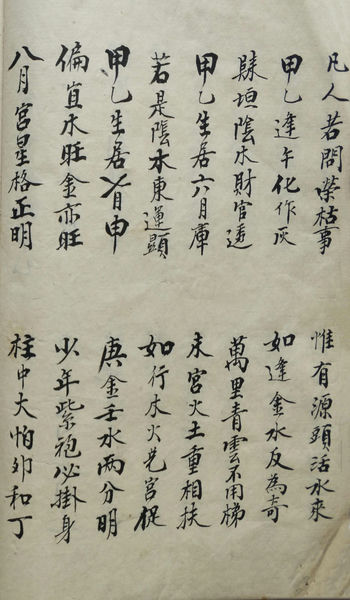 凡人若問榮枯事
惟有源頭活水來
甲乙逢午化作灰
如逢金水反為奇
垣陰水財官透
萬里青雲不用梯
甲乙生居六月庫
未宮火土重相扶
若是陰木東運顯
如行木火宮促
甲乙生居月申
庚金壬水兩分明
偏宜水旺金亦旺
少年紫袍必掛身
八月宮星格正明
柱中大怕卯和丁